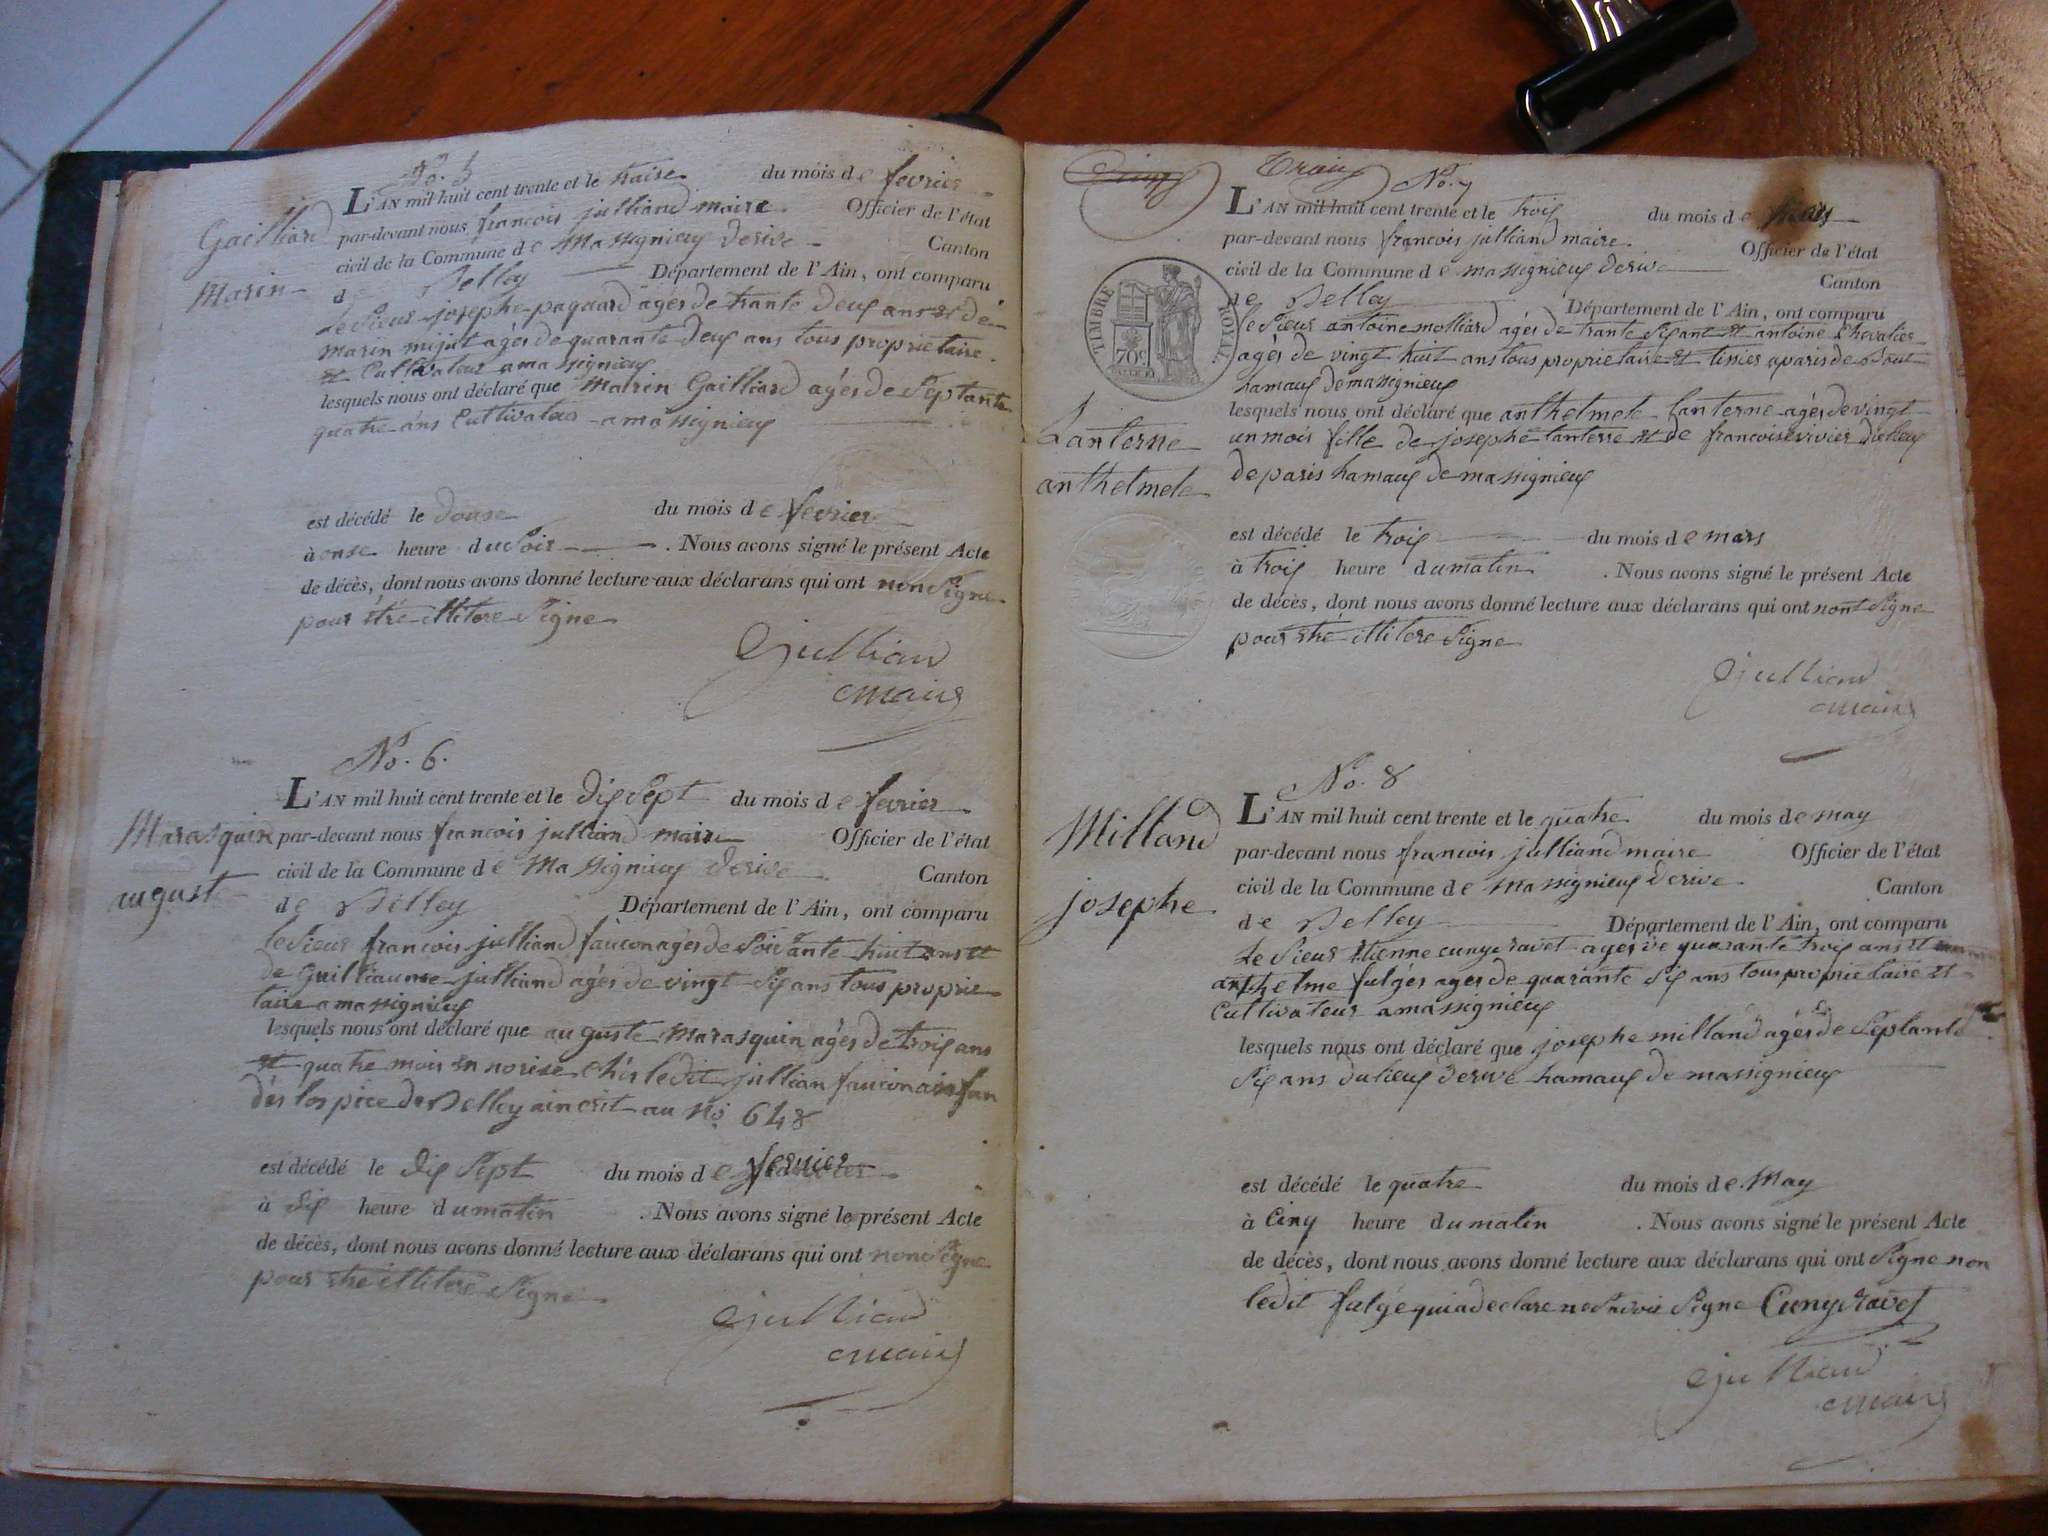 No. 5
L'AN mil huit cent trente et le traise du mois de fevrier
par-devant nous francois julliand maire Officier de l'état
civil de la Commune de Massignieu derive Canton
de Belley Département de l'Ain, ont comparu
Gailliard
Marin
le sieur josephe paquard agés de trante deux ans et dé
marin mijut agés de quarante deux ans tous proprietaire
et Cultivateur a massignieu
lesquels nous ont déclaré que Marin Gailliard agés de Septante
quatre ans Cultivateur a massignieu
est décédé le douse du mois de fevrier
à onse heure du Soir . Nous avons signé le présent Acte
de décès, dont nous avons donné lecture aux déclarans qui ont non Signe
pour etre illitere Signe
Julliand
maire
No. 6.
L'AN mil huit cent trente et le dix Sept du mois de fevrier
par-devant nous francois julliand maire Officier de l'état
civil de la Commune de Massignieu derive Canton
de Belley Département de l'Ain, ont comparu
Marasquin
auguste
le Sieur francois julliand faucon agés de Soixante huit ans et
de Guilliaume julliand agés de vingt Six ans tous proprie
taire a massignieu
lesquels nous ont déclaré que auguste Marasquin agés de trois ans
et quatre mois en norise chés ledit jullian faucon anfan
dés lospice de Belley ainCrit au No 648
est décédé le dix Sept du mois de fevrier
à dix heure du matin . Nous avons signé le présent Acte
de décès, dont nous avons donné lecture aux déclarans qui ont non Signe
pour etre illitere Signe
Julliand
maire
No. 7
L'AN mil huit cent trente et le trois du mois de mars
par-devant nous francois julliand maire. Officier de l'état
civil de la Commune de massignieu derive Canton
de Belley Département de l'Ain, ont comparu
TIMBRE ROYAL
70c
Lanterne
anthelmete
le Sieur antoine molliard agés de trante Six ans et antoine Chevalier
agés de vingt huit ans tous proprietaire et tissier a paris de Dout
hamaux de massignieux
lesquels nous ont déclaré que anthelmete lanterne agés de vingt
un mois fille de josephe lanterne et de francoise vivier du lieux
de paris hamaux de massignieux
est décédé le trois du mois de mars
à trois heure du matin . Nous avons signé le présent Acte
de décès, dont nous avons donné lecture aux déclarans qui ont nont Signe
pour etre illitere Signe
Julliand
maire
No. 8
L'AN mil huit cent trente et le quatre du mois de may
par-devant nous francois julliand maire Officier de l'état
civil de la Commune de Massignieux derive Canton
de Belley Département de l'Ain, ont comparu
Milland
josephe
le Sieur Etienne cuny ravet agés de quarante trois ans et
anthelme fulgés agés de quarante Six ans tous proprietaire et
Cultivateur a massignieux
lesquels nous ont déclaré que josephe milland agés de Septante
Six ans du lieux derive hamaux de massignieux
est décédé le quatre du mois de May
à Cinq heure du matin . Nous avons signé le présent Acte
de décès, dont nous avons donné lecture aux déclarans qui ont Signe non
ledit fulge qui a declare ne Savoir Signe Cuny Ravet
Julliand
maire